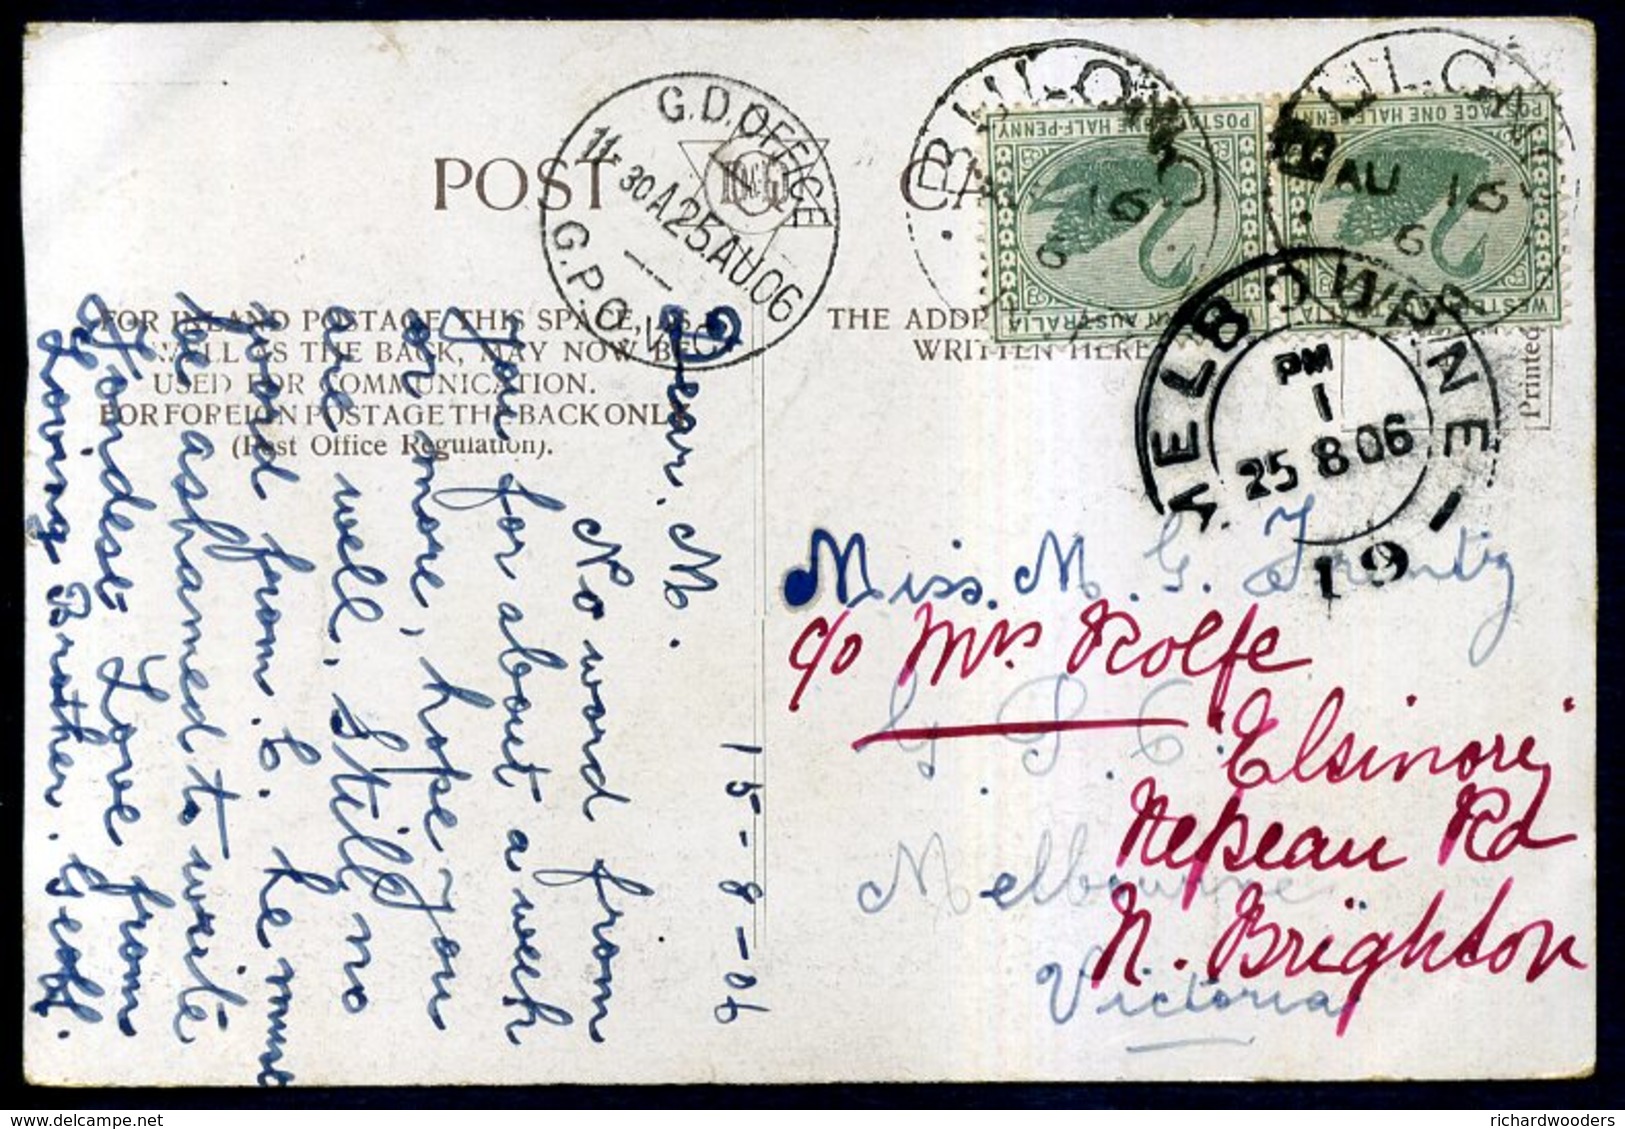 POST CARD
G.D.OFFICE
11-30A25.AU.06
G.P.O. VIC
BULONG
AU 16
6
BULONG
AU 16
6
POSTAGE ONE HALF-PENNY
WESTERN AUSTRALIA
POSTAGE ONE HALF-PENNY
WESTERN AUSTRALIA
MELBOURNE
PM
1
25 8 06
19
FOR INLAND POSTAGE THIS SPACE, AS
WELL AS THE BACK, MAY NOW BE
USED FOR COMMUNICATION.
FOR FOREIGN POSTAGE THE BACK ONLY
(Post Office Regulation).
THE ADDRESS
WRITTEN HERE
Printed
15-8-06
Dear. M.
No word from
you for about a week
or more, hope you
are well. Still no
word from. C. he must
be ashamed to write
Fondest Love from
Loving Brother.
Miss. M. G.
G P O
Melbourne
Victoria
c/o Mrs Rolfe
"Elsinore"
Nepean Rd
N. Brighton
richardwooders